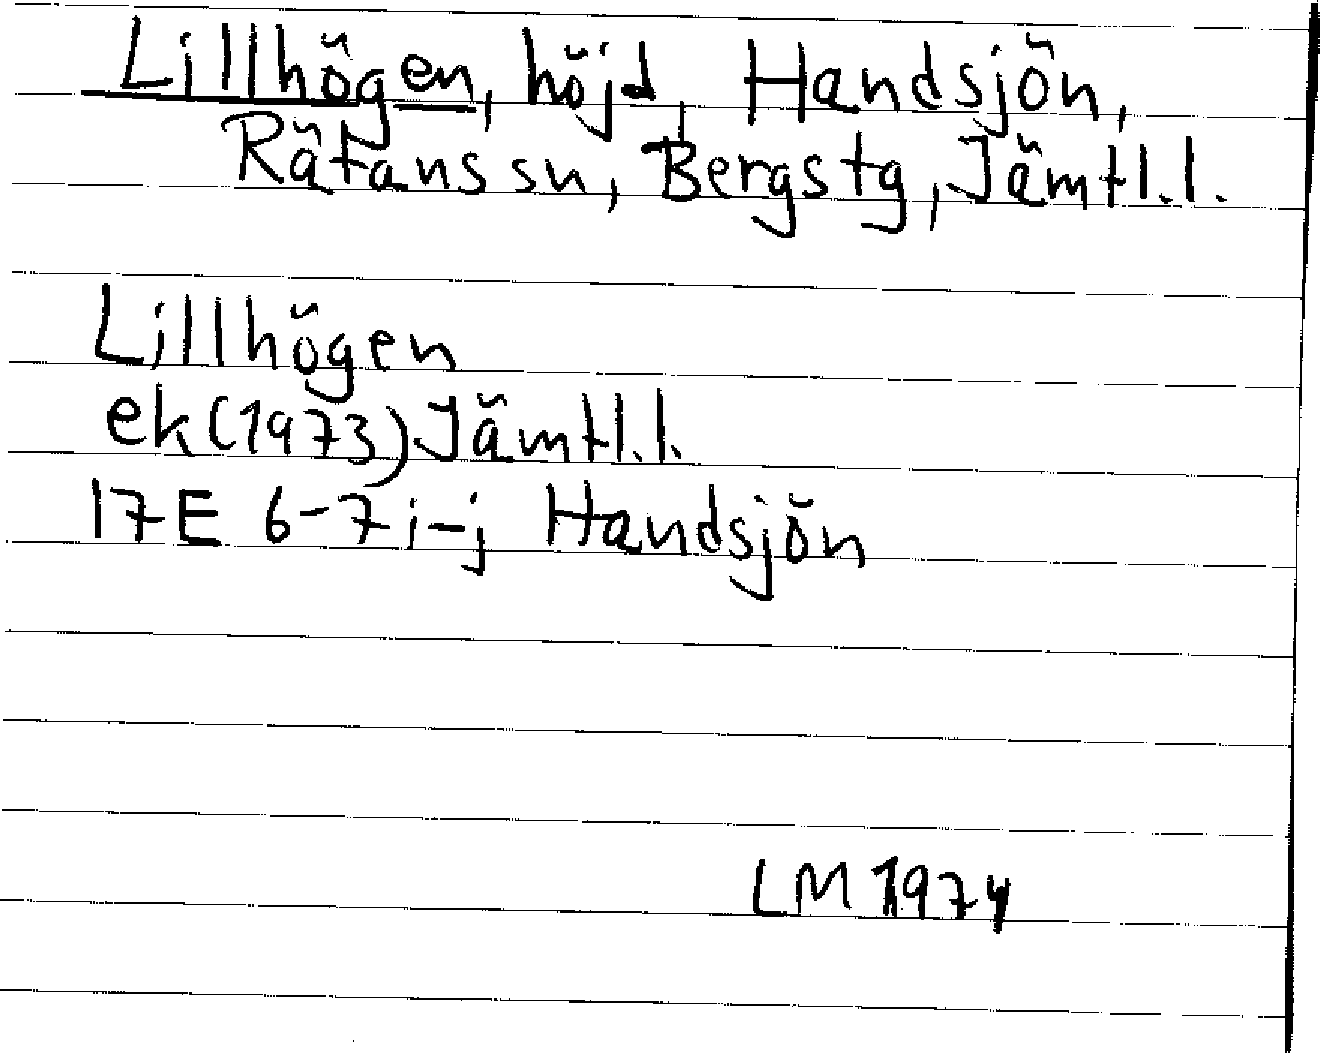 Lillhögen, höjd, Handsjön,
Rätans sn, Bergs tg, Jämtl.l.
Lillhögen
ek(1973) Jämtl.l.
17E 6-7 i-j Handsjön
LM 1974